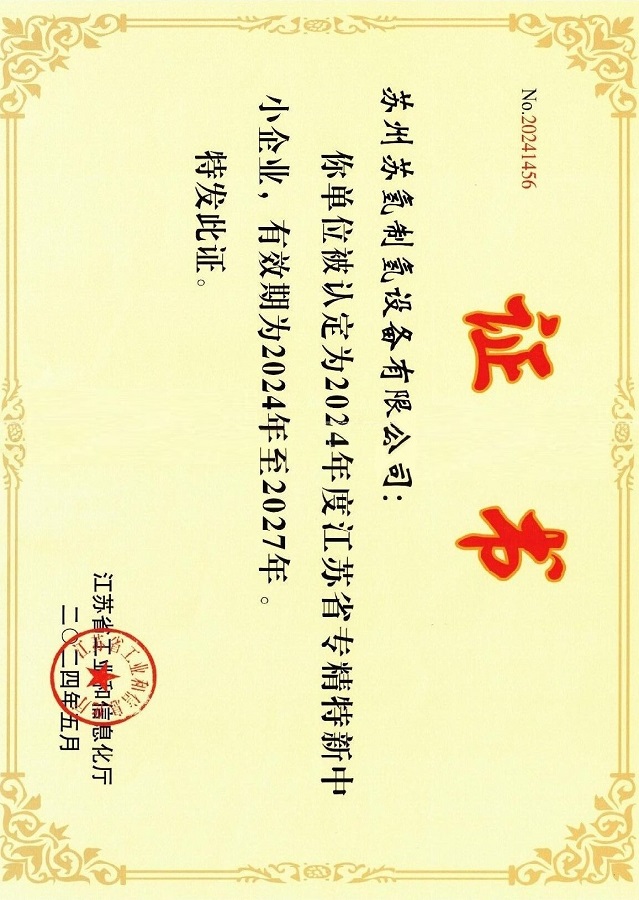 No.20241456
证书
苏州苏氢制氢设备有限公司：
你单位被认定为2024年度江苏省专精特新中
小企业，有效期为2024年至2027年。
特发此证。
江苏省工业和信息化厅
二〇二四年五月
江苏省工业和信息化厅